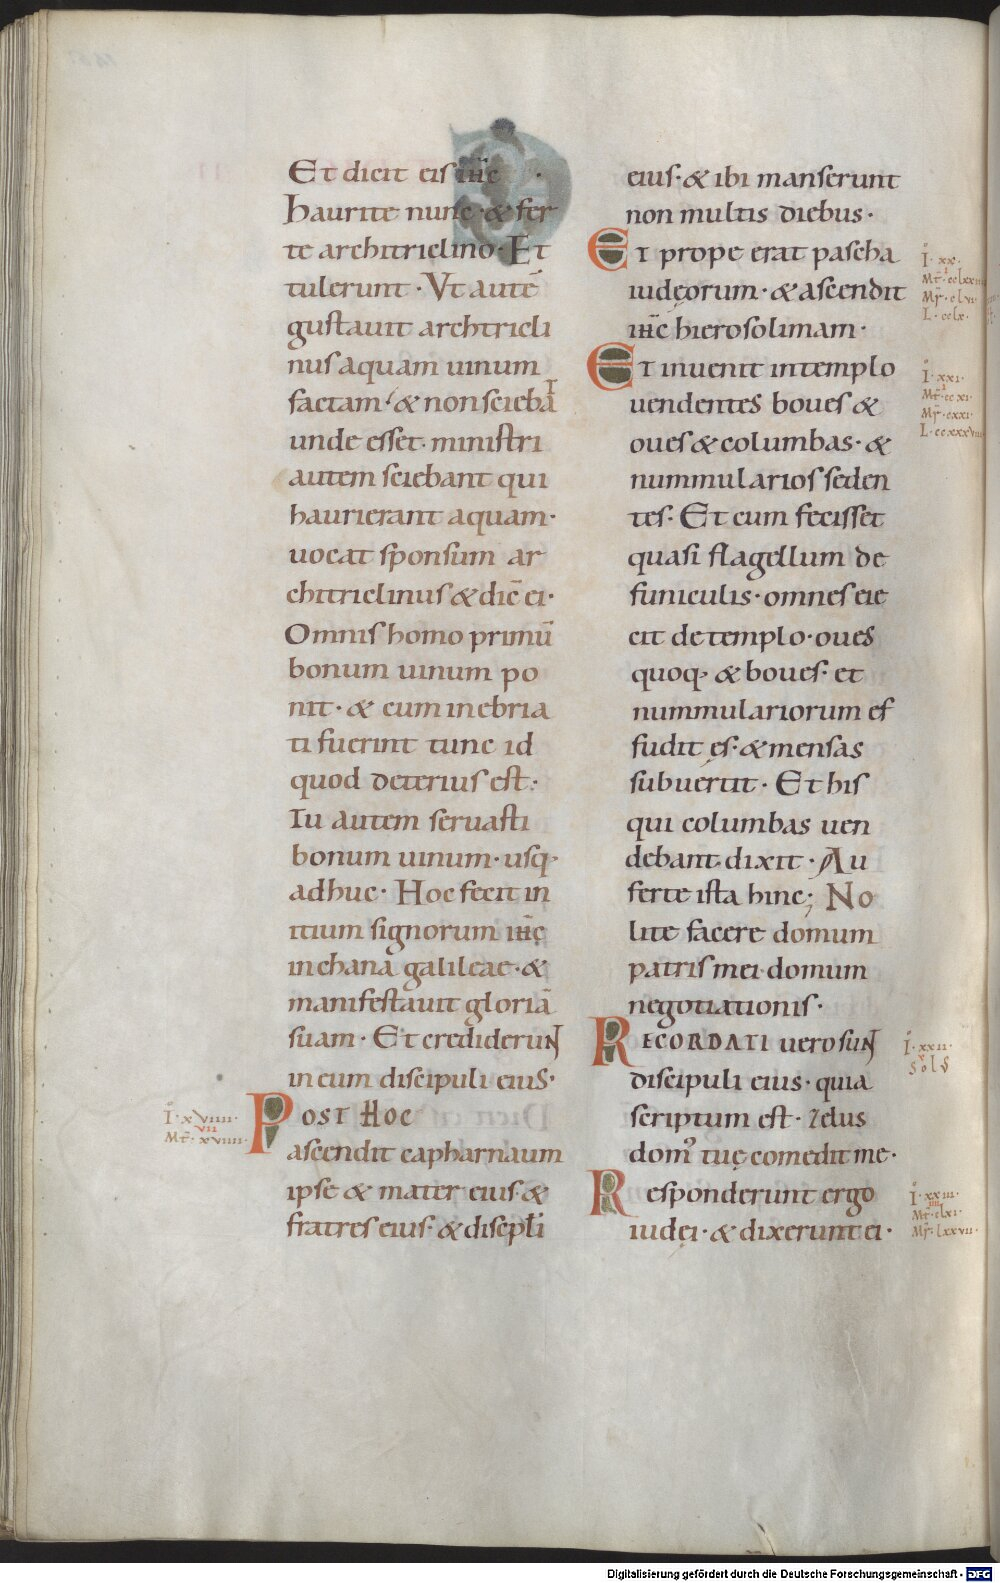 Et dicit eis ihc ·
Haurite nunc · & fer
te architriclino · Et
tulerunt · Vt autē
gustauit architricli
nus aquam uinum
factam · & non scieba T
unde esset · ministri
autem sciebant qui
haurierant aquam ·
uocat sponsum ar
chitriclinus & dic̄ ei ·
Omnis homo primū
bonum uinum po
nit · & cum inebria
ti fuerint tunc id
quod deterius est ·
Tu autem seruasti
bonum uinum · usq·
adhuc · Hoc fecit in
itium signorum ihc
in chana galileae · &
manifestauit gloriā
suam · Et crediderunt
in eum discipuli eius ·
I · xviiii ·
vii
Mt̄ · xviiii ·
POST HOC
ascendit capharnaum
ipse & mater eius · &
fratres eius · & discipłi
eius · & ibi manserunt
non multis diebus ·
Et prope erat pascha
iudęorum · & ascendit
ihc hierosolimam ·
I · xx ·
L · cclx ·
Et inuenit in templo
uendentes boues &
oues & columbas · &
nummularios seden
tes · Et cum fecisset
quasi flagellum de
funiculis · omnes eie
cit de templo · oues
quoq· & boues · et
nummulariorum ef
fudit ęs · & mensas
subuertit · Et his
qui columbas uen
debant · dixit · Au
ferte ista hinc ; No
lite facere domum
patris mei domum
negotiationis ·
I · xxi ·
Mt̄ · ccxi ·
Mr̄ · cxxi ·
RECORDATI uero sunt
discipuli eius · quia
scriptum est · zelus
dom' tuę comedit me ·
I · xxii ·
x
solS
Responderunt ergo
iudęi · & dixerunt ei ·
I · xxiii ·
iiii
Mt̄ · clxi ·
Mr̄ · lxxvii ·
Digitalisierung gefördert durch die Deutsche Forschungsgemeinschaft - DFG